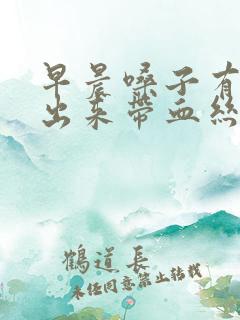 早晨嗓子有
出来带血丝
鹤道长
未经同意禁止转载